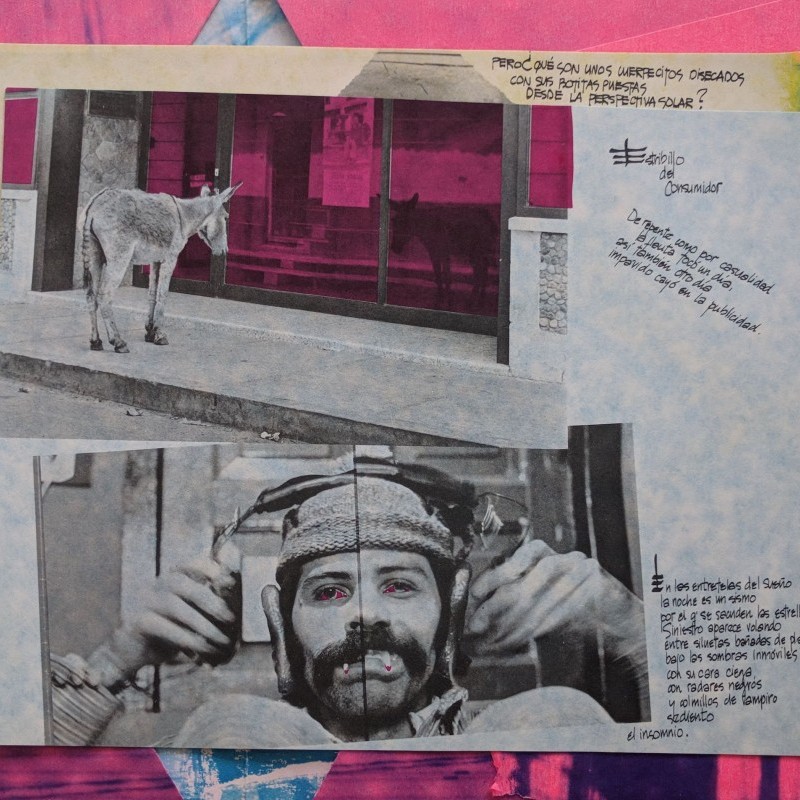 PERO ¿QUÉ SON UNOS CUERPECITOS DISECADOS
CON SUS BOTITAS PUESTAS
DESDE LA PERSPECTIVA SOLAR?
Estribillo
del
Consumidor
De repente como por casualidad
la flauta tocó un día.
así también otro día
impávido cayó en la publicidad.
En las entretelas del sueño
la noche es un sismo
por el q' se sacuden las estrell
Siniestro aparece volando
entre siluetas bañadas de pla
bajo las sombras inmóviles
con su cara ciega
con radares negros
y colmillos de vampiro
sediento
el insomnio.